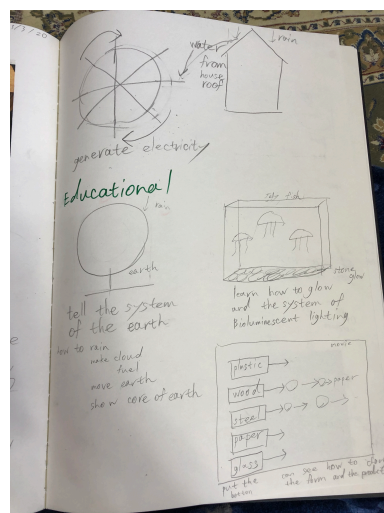 3/3/20
water
from
house
roof
rain
generate electricity
Educational
rain
earth
tell the system
of the earth
how to rain
make cloud
fuel
move earth
show core of earth
fish
stone
glow
learn how to glow
and the system of
Bioluminescent lighting
movie
plastic
wood
paper
steel
paper
glass
put the
button
can see how to
the form and the product